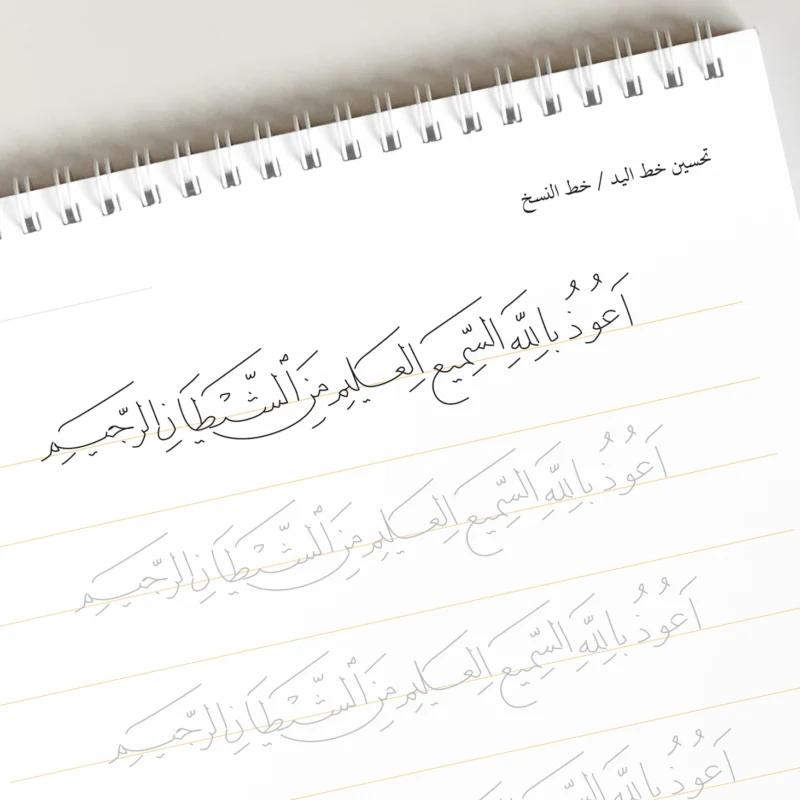 تحسين خط اليد / خط النسخ
اَعُوذُ بِاللهِ السَّمِيعِ الْعَلِيمِ مِنَ الشَّيْطَانِ الرَّجِيمِ
اَعُوذُ بِاللهِ السَّمِيعِ الْعَلِيمِ مِنَ الشَّيْطَانِ الرَّجِيمِ
اَعُوذُ بِاللهِ السَّمِيعِ الْعَلِيمِ مِنَ الشَّيْطَانِ الرَّجِيمِ
اَعُوذُ بِاللهِ